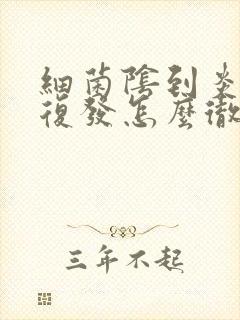 細菌陰到炎
復發怎麼徹
三年不起